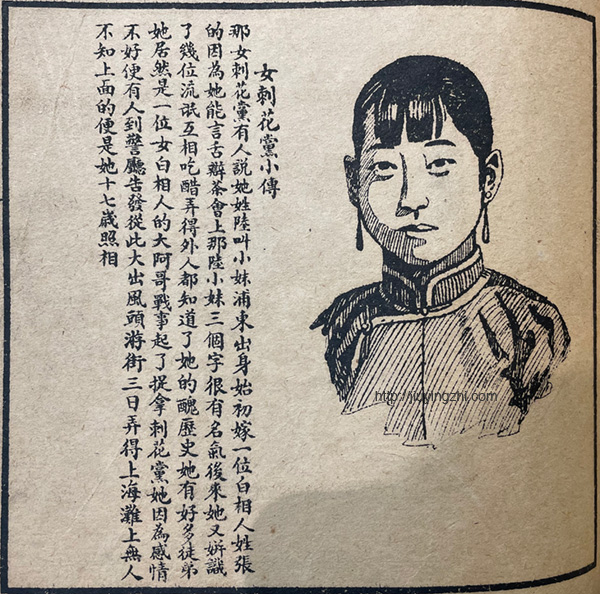 女刺花黨小傳
那女刺花黨有人說她姓陸叫小妹浦東出身始初嫁一位白相人姓張
的因為她能言舌辯茶會上那陸小妹三個字很有名氣後來她又姘識
了幾位流氓互相吃醋弄得外人都知道了她的醜歷史她有好多徒弟
她居然是一位女白相人的大阿哥戰事起了捉拿刺花黨她因為感情
不好便有人到警廳告發從此大出風頭游街三日弄得上海灘上無人
不知上面的便是她十七歲照相
http://jiuyingzhi.com